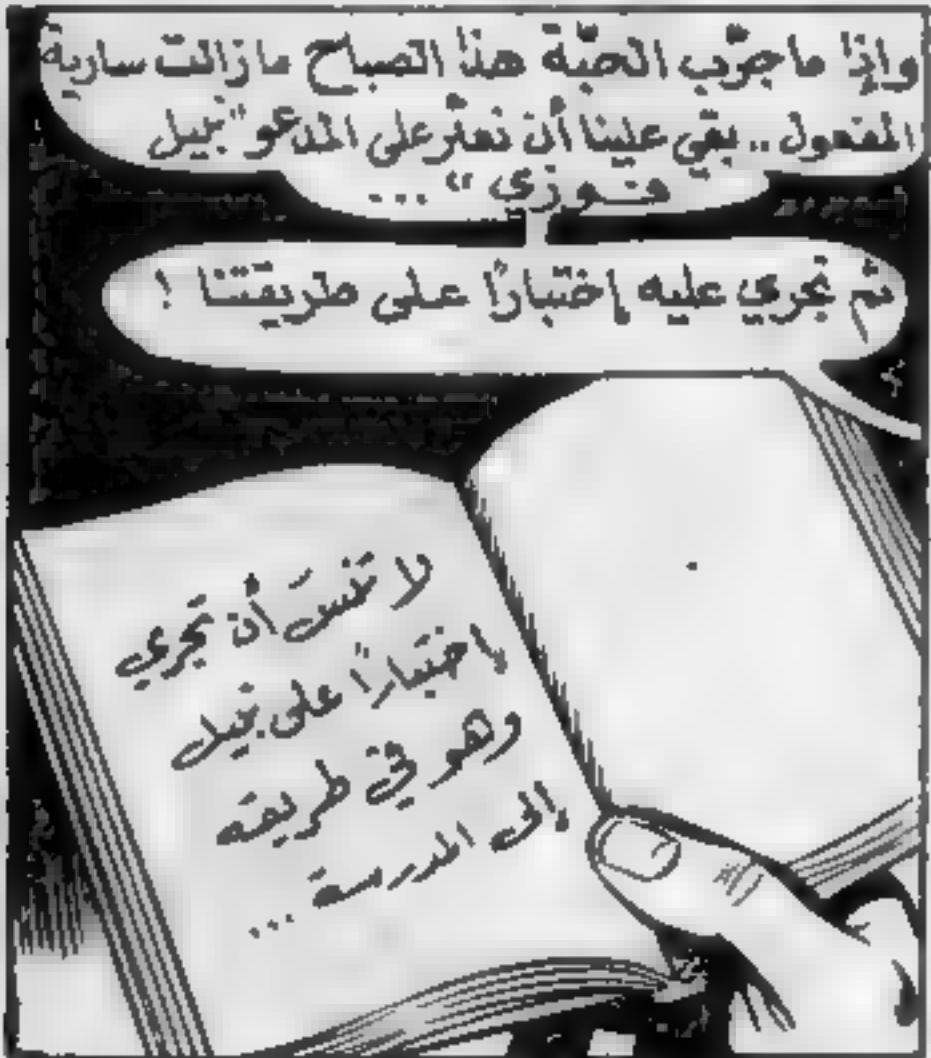 وإذا ما جرّب الحبّة هذا الصباح مازالت سارية
المفعول .. بقي علينا أن نعثر على المدعو "نبيل
فوزي" ...
ثم نجري عليه إختبارًا على طريقتنا !
لا تنسَ أن تجري
إختبارًا على نبيل
وهو في طريقه
إلى المدرسة ...